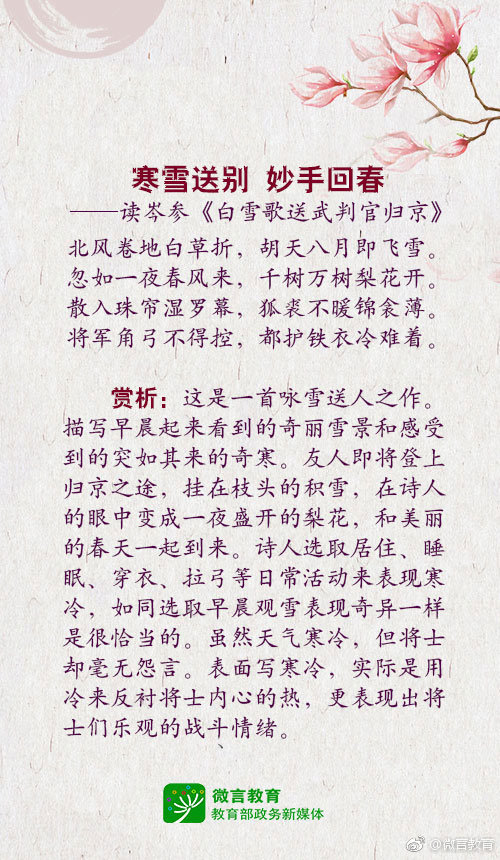 寒雪送别 妙手回春
——读岑参《白雪歌送武判官归京》
北风卷地白草折，胡天八月即飞雪。
忽如一夜春风来，千树万树梨花开。
散入珠帘湿罗幕，狐裘不暖锦衾薄。
将军角弓不得控，都护铁衣冷难着。
赏析：这是一首咏雪送人之作。
描写早晨起来看到的奇丽雪景和感受
到的突如其来的奇寒。友人即将登上
归京之途，挂在枝头的积雪，在诗人
的眼中变成一夜盛开的梨花，和美丽
的春天一起到来。诗人选取居住、睡
眠、穿衣、拉弓等日常活动来表现寒
冷，如同选取早晨观雪表现奇异一样
是很恰当的。虽然天气寒冷，但将士
却毫无怨言。表面写寒冷，实际是用
冷来反衬将士内心的热，更表现出将
士们乐观的战斗情绪。
微言教育
教育部政务新媒体
@微言教育